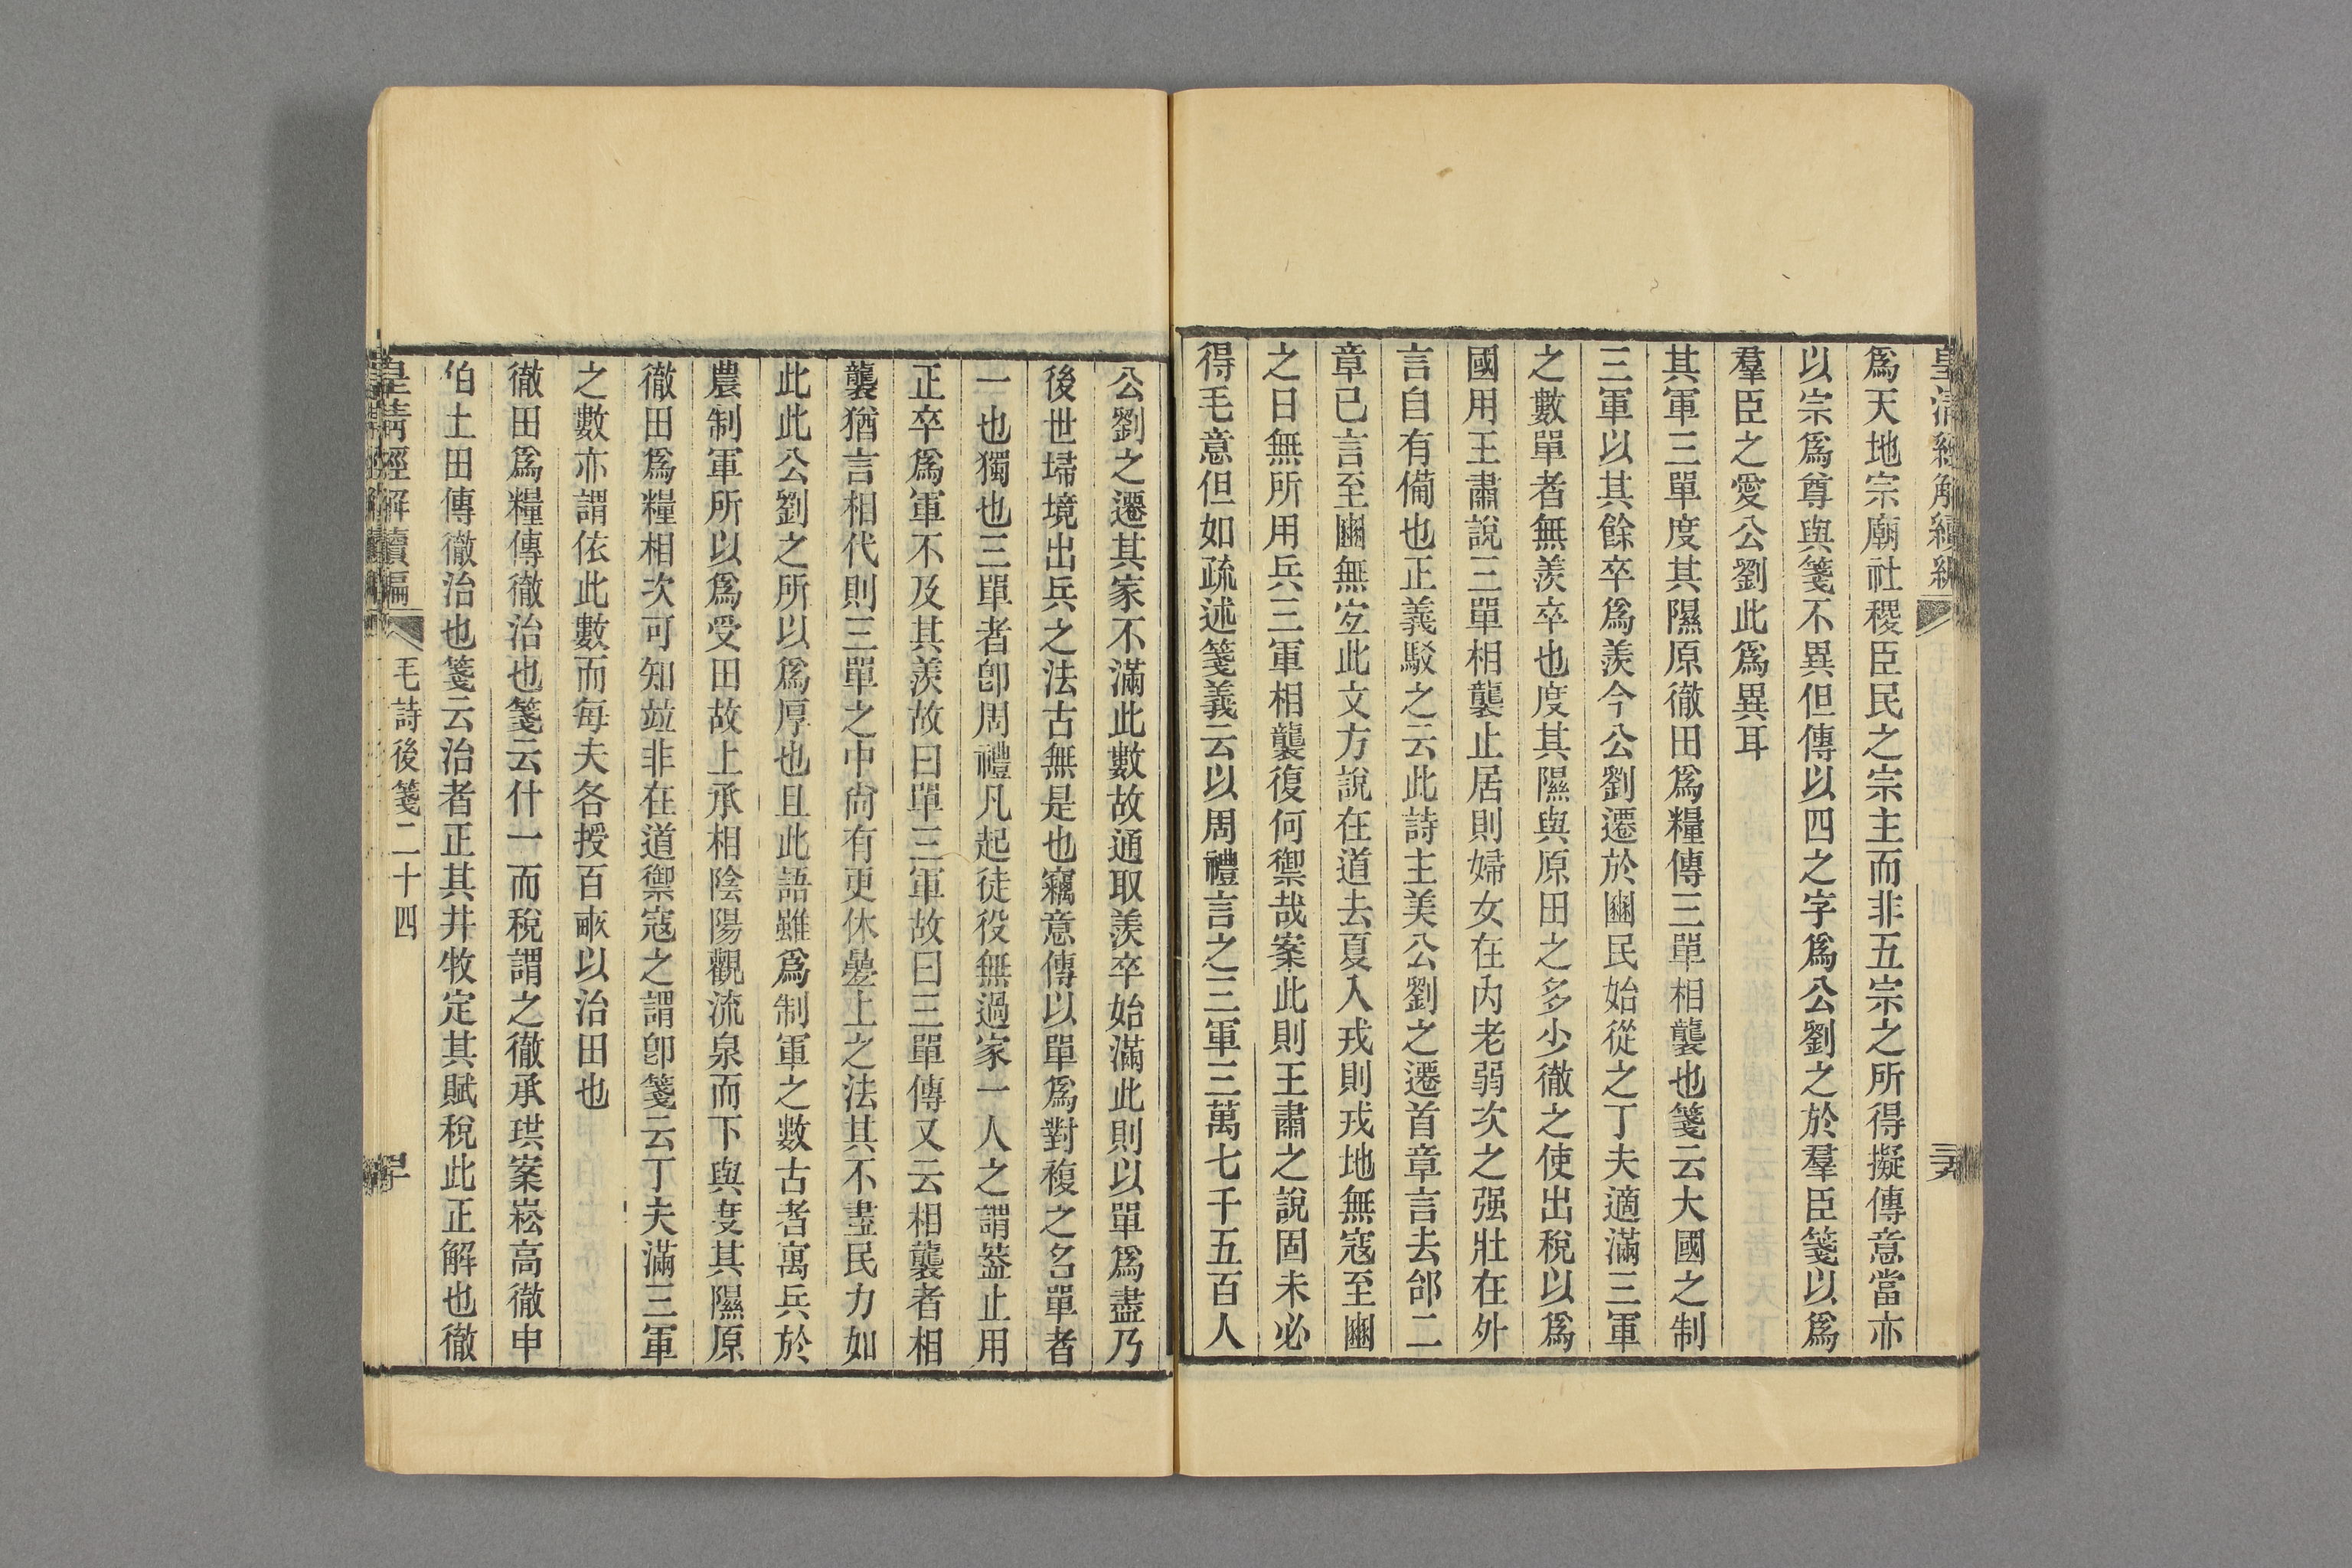 皇清經解續編
爲天地宗廟社稷臣民之宗主而非五宗之所得擬傳意當亦
以宗爲尊與箋不異但傳以四之字爲公劉之於羣臣箋以爲
羣臣之愛公劉此爲異耳
其軍三單度其隰原徹田爲糧傳三單相襲也箋云大國之制
三軍以其餘卒爲羨今公劉遷於豳民始從之丁夫適滿三軍
之數單者無羨卒也度其隰與原田之多少徹之使出稅以爲
國用王肅說三單相襲止居則婦女在內老弱次之强壯在外
言自有備也正義駁之云此詩主美公劉之遷首章言去邰二
章已言至豳無宐此文方說在道去夏入戎則戎地無寇至豳
之日無所用兵三軍相襲復何禦哉案此則王肅之說固未必
得毛意但如疏述箋義云以周禮言之三軍三萬七千五百人
公劉之遷其家不滿此數故通取羨卒始滿此則以單爲盡乃
後世埽境出兵之法古無是也竊意傳以單爲對複之名單者
一也獨也三單者卽周禮凡起徒役無過家一人之謂葢止用
正卒爲軍不及其羨故曰單三軍故曰三單傳又云相襲者相
襲猶言相代則三單之中尙有更休曡上之法其不盡民力如
此此公劉之所以爲厚也且此語雖爲制軍之數古者寓兵於
農制軍所以爲受田故上承相陰陽觀流泉而下與度其隰原
徹田爲糧相次可知竝非在道禦寇之謂卽箋云丁夫滿三軍
之數亦謂依此數而每夫各授百畞以治田也
徹田爲糧傳徹治也箋云什一而稅謂之徹承珙案崧高徹申
伯土田傳徹治也箋云治者正其井牧定其賦稅此正解也徹
皇清經解續編
毛詩後箋二十四